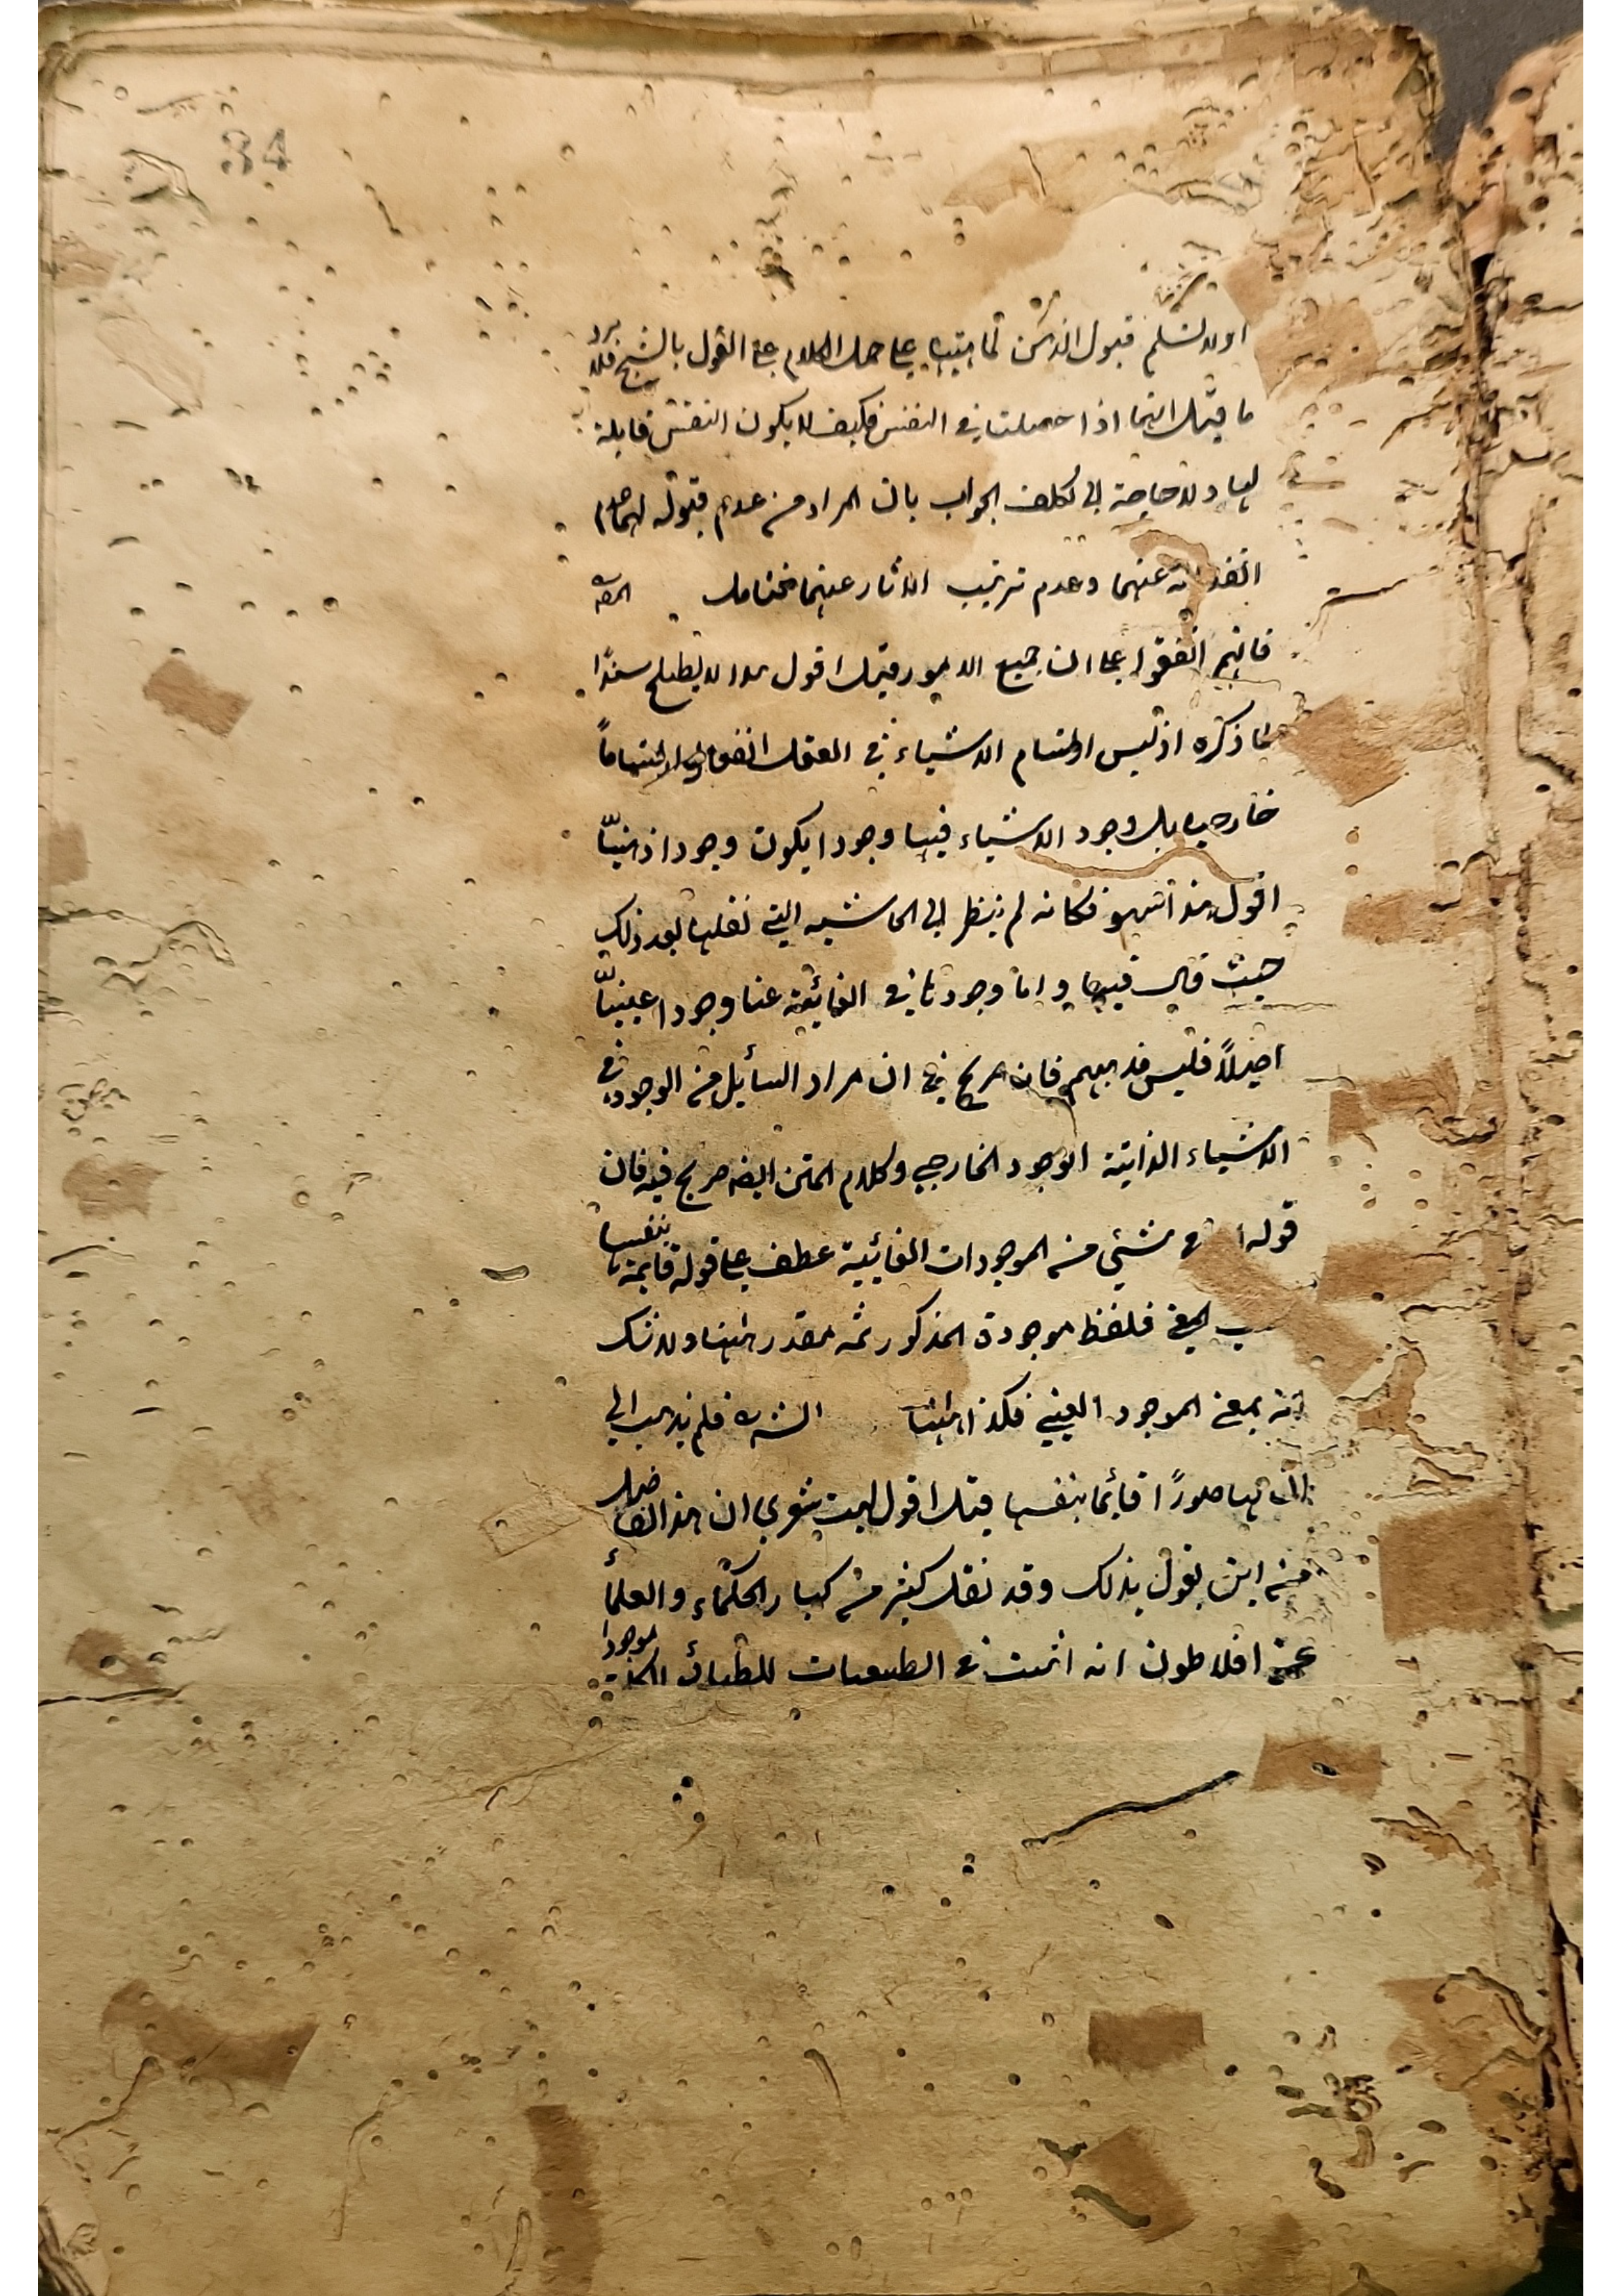 34
او لا نسلم قبول الذهن لماهيته على حمل الكلام على القول بالشبح فلا يرد
ما قيل انهما اذا حصلتا في النفس فكيف لا يكون النفس قابلة
لها ولا حاجة الى تكلف الجواب بان المراد من عدم قبوله لهما عدم
انفعاله عنهما وعدم ترتب الاثار عنهما فتامل
فانهم اتفقوا على ان جميع الامور قيل اقول هذا لا يصلح سندًا
لما ذكره اذ ليس ارتسام الاشياء في العقل اتفاقا
خارجيا بل وجود الاشياء فيها وجودا يكون وجودا ذهنيّا
اقول هذا سهو فكانه لم ينظر الى الحاشيه التي نقلها بعد ذلك
حيث قال فيها واما وجودها في الغائبة عنا وجودا عينيّا
اصيلاً فليس مذهبهم فانه صريح في ان مراد السائل من الوجود في
الاشياء الغايبة الوجود الخارجي وكلام المتن ايضه صريح فيه فان
قوله شيئي من الموجودات الغائبية عطف على قوله قايمة بنفسها
المعنى فلفظ موجودة المذكور ثمه مقدر ههنا ولا شك
انه بمعنى الموجود العيني فكذا ههنا فلم يذهب الى
ان لها صورًا قائما بنفسها قيل اقول ليت شعري ان هذا الفاضل
من اين يقول بذلك وقد نقل كثير من كبار الحكماء والعلمأ
عن افلاطون انه اثبت في الطبيعيات للطبائع الكلية موجودا